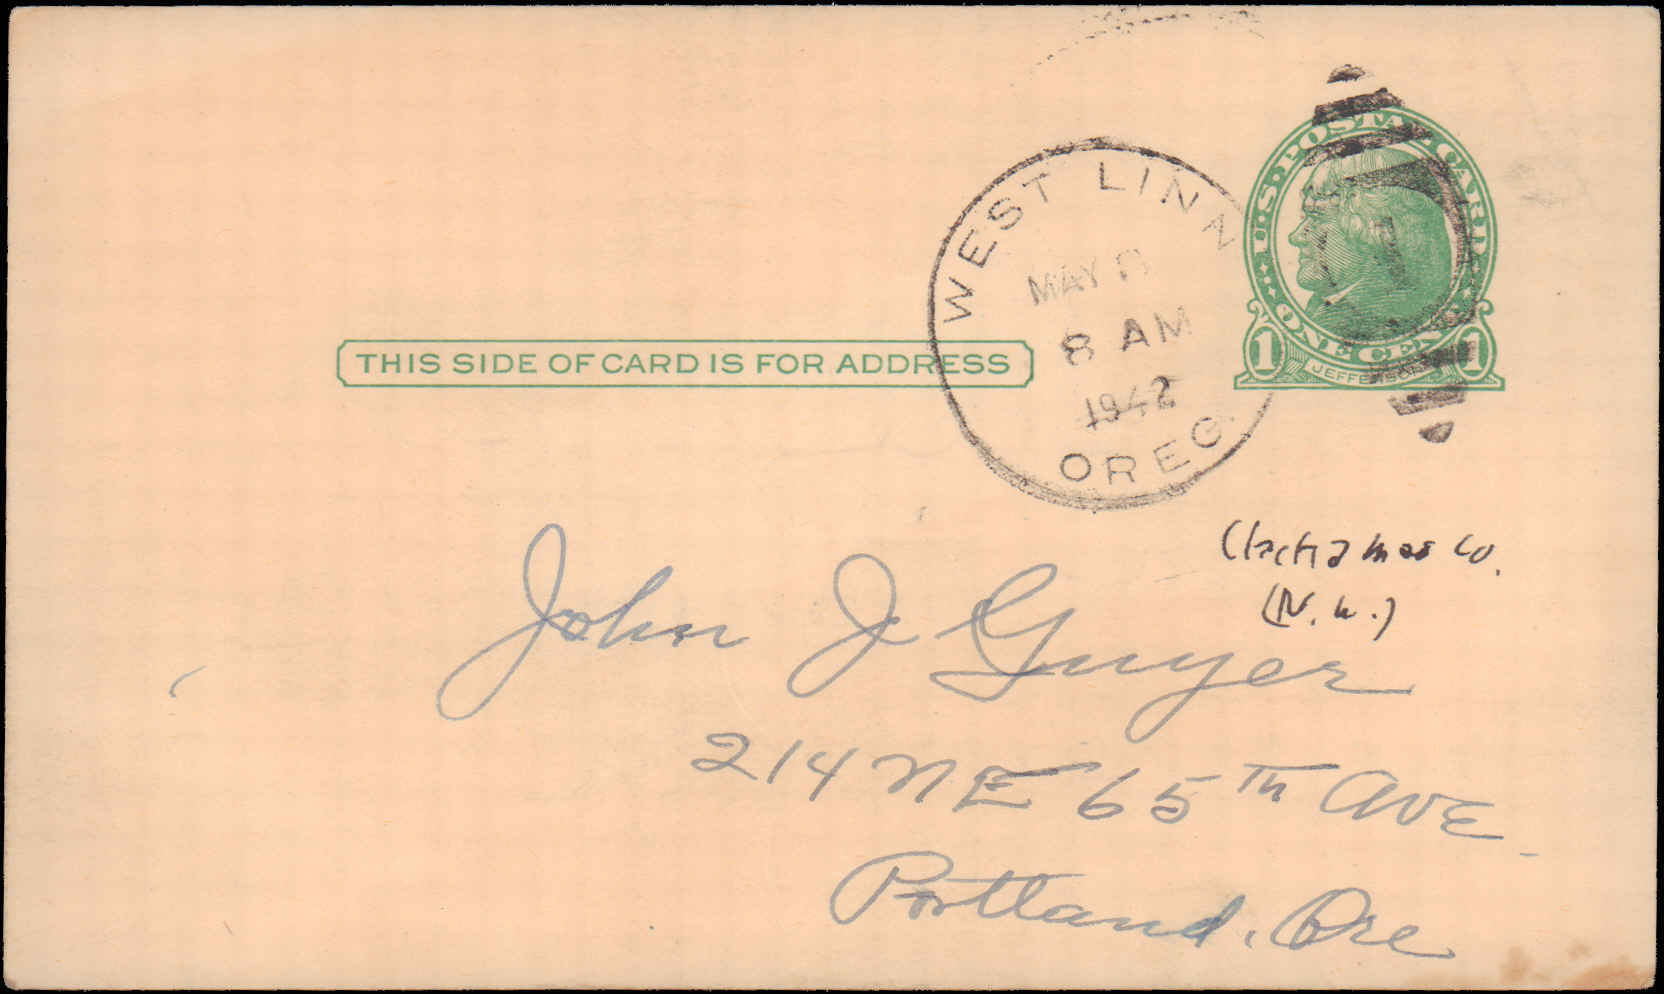 U.S. POSTAL CARD
WEST LINN
MAY
8 AM
1942
OREG.
ONE CENT
1 1
JEFFERSON
THIS SIDE OF CARD IS FOR ADDRESS
Clackamas Co.
(N.W.)
John J Guyer
214 NE 65TH AVE
Portland, Ore